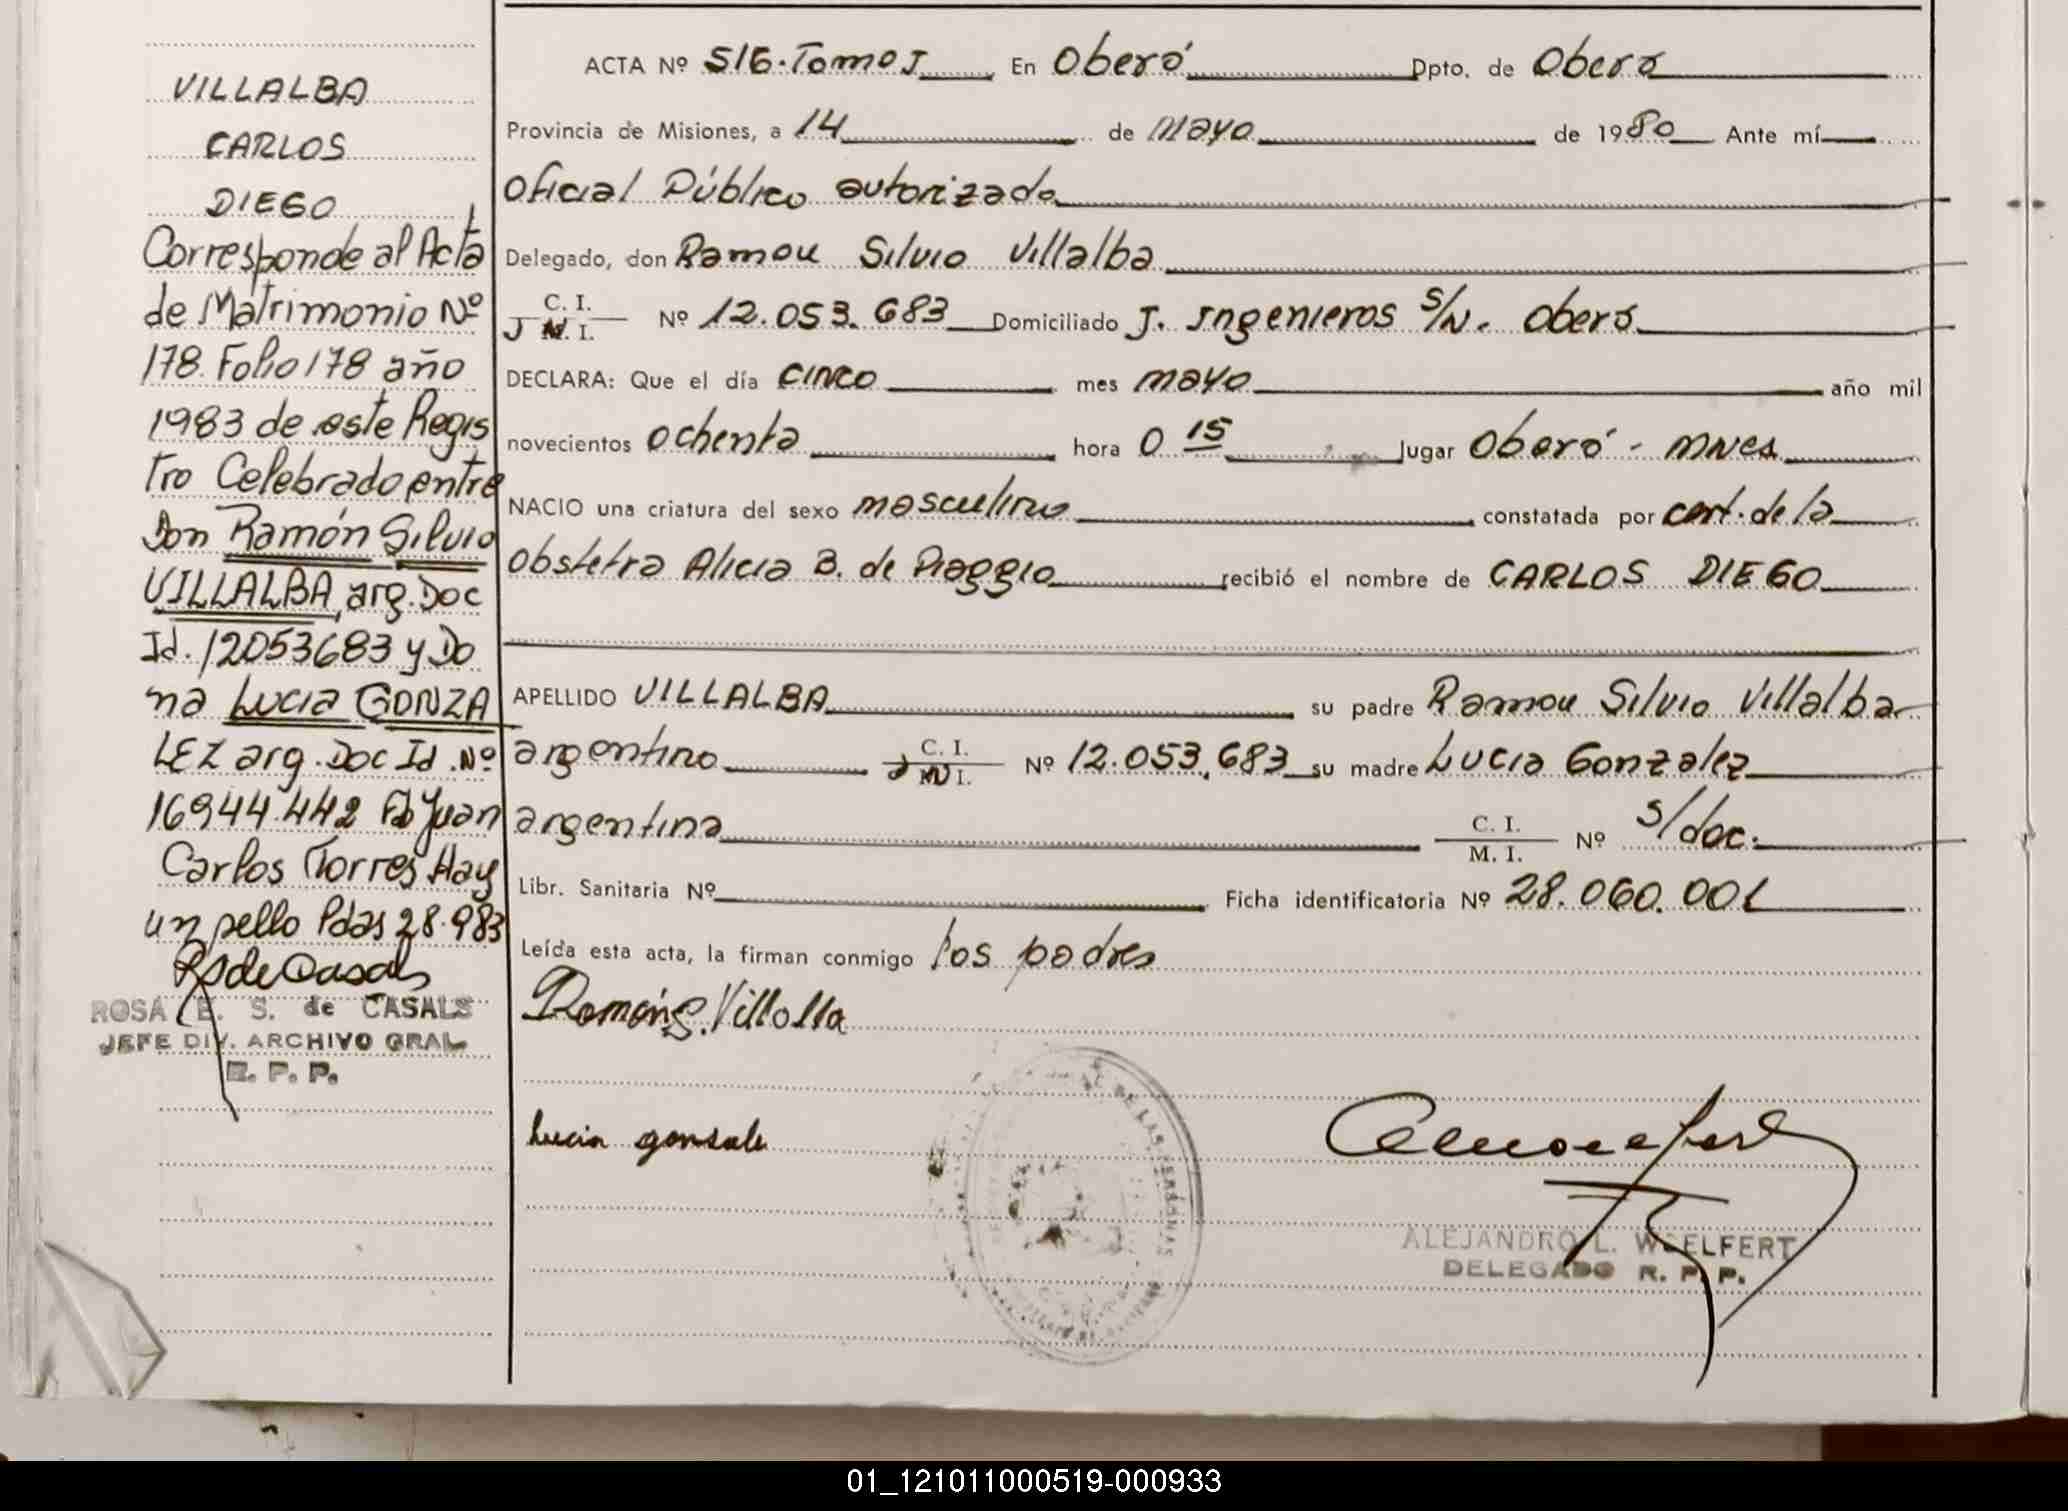 VILLALBA
CARLOS
DIEGO
Corresponde al Acta
de Matrimonio Nº
178 Folio 178 año
1983 de este Regis
tro Celebrado entre
Don Ramón Silvio
VILLALBA, arg. Doc
Id. 12053683 y Do
na Lucia GONZA
LEZ arg. Doc Id. Nº
16944.442 Juan
Carlos Torres Hay
un sello Pdas 28.983
ROSA E. S. de CASALS
JEFE DIV. ARCHIVO GRAL
R. P. P.
ACTA Nº 516. Tomo I En Oberá Dpto. de Oberá
Provincia de Misiones, a 14 de Mayo de 1980 Ante mí
Oficial Público autorizado
Delegado, don Ramon Silvio Villalba
C. I. M. I. Nº 12.053.683 Domiciliado J. Ingenieros S/N. Oberá
DECLARA: Que el día cinco mes mayo año mil
novecientos ochenta hora 0 15 lugar Oberá - Mnes
NACIO una criatura del sexo masculino constatada por cert. de la
Obstetra Alicia B. de Piaggio recibió el nombre de CARLOS DIEGO
APELLIDO VILLALBA su padre Ramon Silvio Villalba
argentino C. I. M. I. Nº 12.053.683 su madre Lucia Gonzalez
argentina C. I. M. I. Nº S/doc.
Libr. Sanitaria Nº Ficha identificatoria Nº 28.060.001
Leída esta acta, la firman conmigo los padres
Ramón S. Villalba
Lucia gonsale
ALEJANDRO L. WOELFERT
DELEGADO R. P. P.
01_121011000519-000933